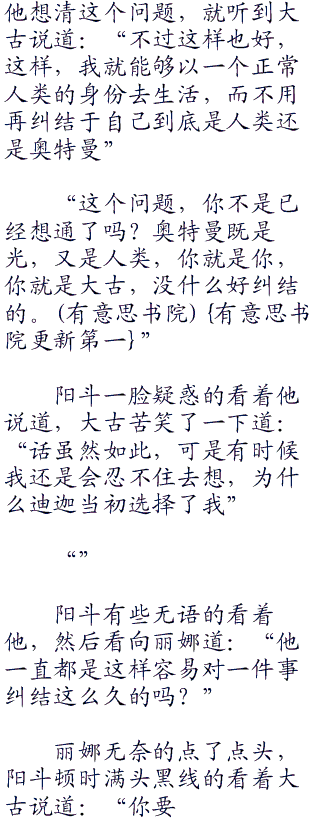 他想清这个问题，就听到大
古说道：“不过这样也好，
这样，我就能够以一个正常
人类的身份去生活，而不用
再纠结于自己到底是人类还
是奥特曼”
“这个问题，你不是已
经想通了吗？奥特曼既是
光，又是人类，你就是你，
你就是大古，没什么好纠结
的。(有意思书院) {有意思书
院更新第一}”
阳斗一脸疑惑的看着他
说道，大古苦笑了一下道：
“话虽然如此，可是有时候
我还是会忍不住去想，为什
么迪迦当初选择了我”
“”
阳斗有些无语的看着
他，然后看向丽娜道：“他
一直都是这样容易对一件事
纠结这么久的吗？”
丽娜无奈的点了点头，
阳斗顿时满头黑线的看着大
古说道：“你要